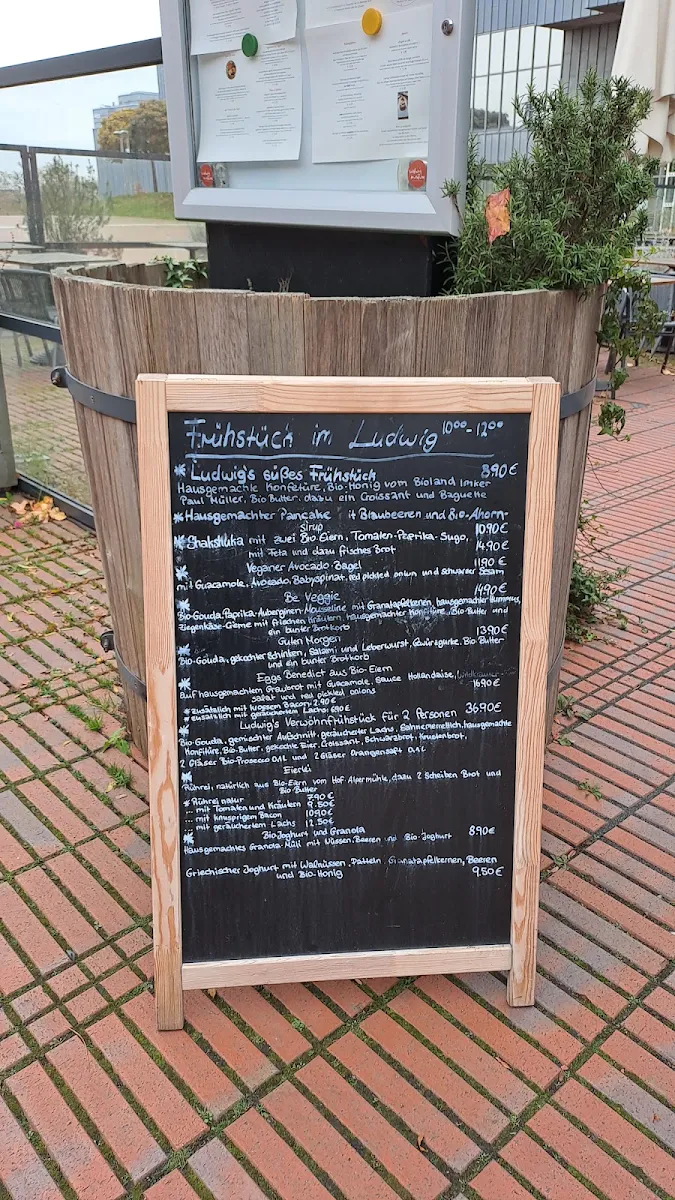 Frühstück im Ludwig 10⁰⁰-12⁰⁰
* Ludwig's süßes Frühstück 8.90€
Hausgemachte Konfetüre, Bio-Honig vom Bioland Imker
Paul Müller, Bio Butter, dazu ein Croissant und Baguette
* Hausgemachter Pancake it Blaubeeren und Bio-Ahorn-
sirup 10.90€
* Shakshuka mit zwei Bio Eiern, Tomaten-Paprika-Sugo,
mit Feta und dazu frisches Brot 14.90€
Veganer Avocado-Bagel 11.90€
* mit Guacamole, Avocado, Babyspinat, red pickled onion und schwarzer Sesam
Be Veggie 14.90€
* Bio-Gouda, Paprika-Auberginen-Mousseline mit Granatapfelkernen, hausgemachter Hummus,
Ziegenkäse-Creme mit frischen Kräutern, hausgemachter Konfitüre, Bio-Butter und
ein bunter Brotkorb
Guten Morgen 13.90€
* Bio-Gouda, gekochter Schinken, Salami und Leberwurst, Gewürzgurke, Bio Butter
und ein bunter Brotkorb
Eggs Benedict aus Bio-Eiern
* auf hausgemachten Graubrot mit Guacamole, Sauce Hollandaise,
salat und red pickled onions 16.90€
* zusätzlich mit krossem Bacon 2.90€
* zusätzlich mit geräuchertem Lachs 6.90€
Ludwig's Verwöhnfrühstück für 2 Personen 36.90€
* Bio-Gouda, gemischter Aufschnitt, geräucherter Lachs, Sahnemeerrettich, hausgemachte
Konfitüre, Bio-Butter, gekochte Eier, Croissant, Schwarzbrot, Krustenbrot,
2 Gläser Bio-Prosecco 0,1L und 2 Gläser Orangensaft 0,1L
Eierlei
* Rührei, natürlich aus Bio-Eiern vom Hof Alpermühle, dazu 2 Scheiben Brot und
Bio-Butter
* Rührei natur 7.90€
... mit Tomaten und Kräutern 9.50€
... mit knusprigem Bacon 10.90€
... mit geräuchertem Lachs 12.50€
* Bio-Joghurt und Granola 8.90€
Hausgemachtes Granola-Müli mit Nüssen, Beeren und Bio-Joghurt
Griechischer Joghurt mit Walnüssen, Datteln, Granatapfelkernen, Beeren
und Bio-Honig 9.50€